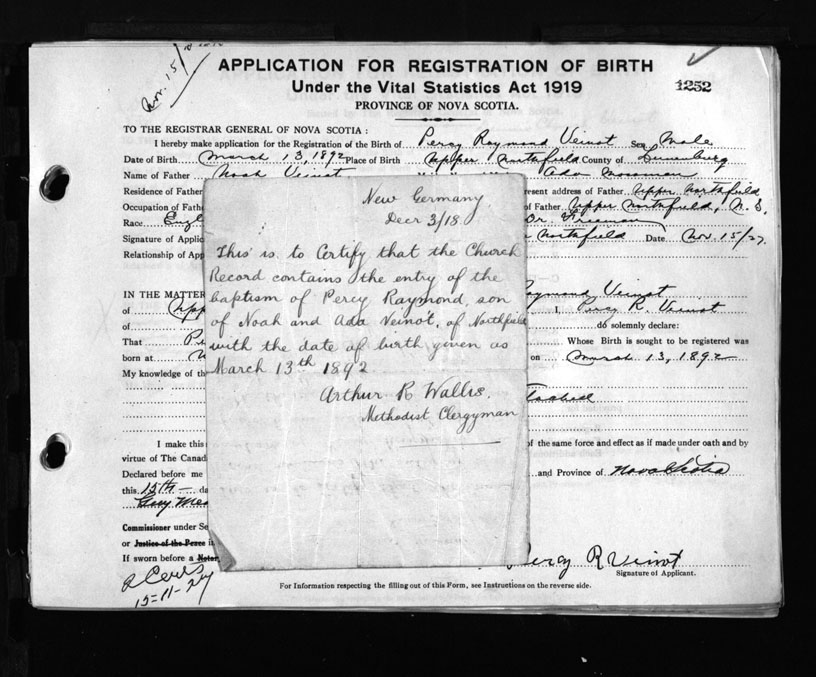 Nov. 15/
APPLICATION FOR REGISTRATION OF BIRTH
Under the Vital Statistics Act 1919
1252
PROVINCE OF NOVA SCOTIA.
TO THE REGISTRAR GENERAL OF NOVA SCOTIA :
I hereby make application for the Registration of the Birth of Percy Raymond Veinot Sex Male
Date of Birth March 13, 1892 Place of Birth Upper Northfield County of Lunenburg
Name of Father Noah Veinot Ada Mossman
Residence of Father resent address of Father Upper Northfield
Occupation of Fath of Father Upper Northfield, N. S.
Race Dr. Freeman
Signature of Applic Northfield Date Nov. 15/27
Relationship of App
New Germany
Decr 3/18
This is to Certify that the Church
Record contains the entry of the
baptism of Percy Raymond, son
of Noah and Ada Veinot, of Northfield
with the date of birth given as
March 13th 1892
Arthur R Wallis.
Methodist Clergyman
IN THE MATTER aymond Veinot
of Upp I, Percy R. Veinot
of do solemnly declare:
That Pe Whose Birth is sought to be registered was
born at on March 13, 1892
My knowledge of th
tached
I make this of the same force and effect as if made under oath and by
virtue of The Canad
Declared before me and Province of Nova Scotia
this 15th da
Commissioner under Se
or Justice of the Peace i
If sworn before a Notar
Percy R Veinot
Signature of Applicant.
15-11-27
For Information respecting the filling out of this Form, see Instructions on the reverse side.